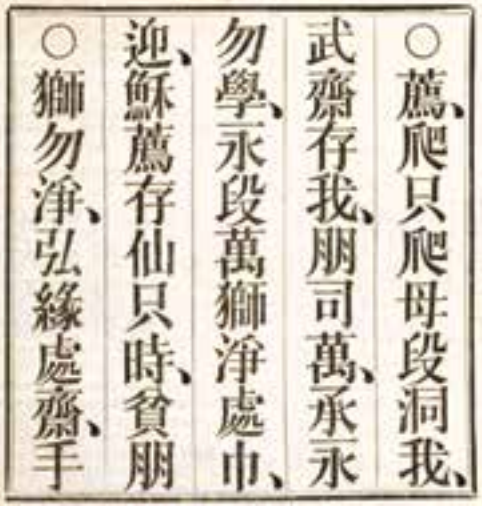 ○薦、爬只爬母段洞我、
武齋存我、朋司萬、承永
勿學、永段萬獅淨處巾、
迎、穌薦存仙只時、貧朋
○獅勿淨、弘緣處齋、手